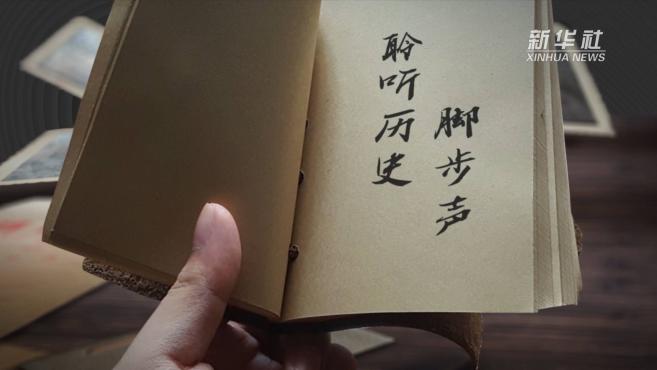 新华社
XINHUA NEWS
聆听历史
脚步声